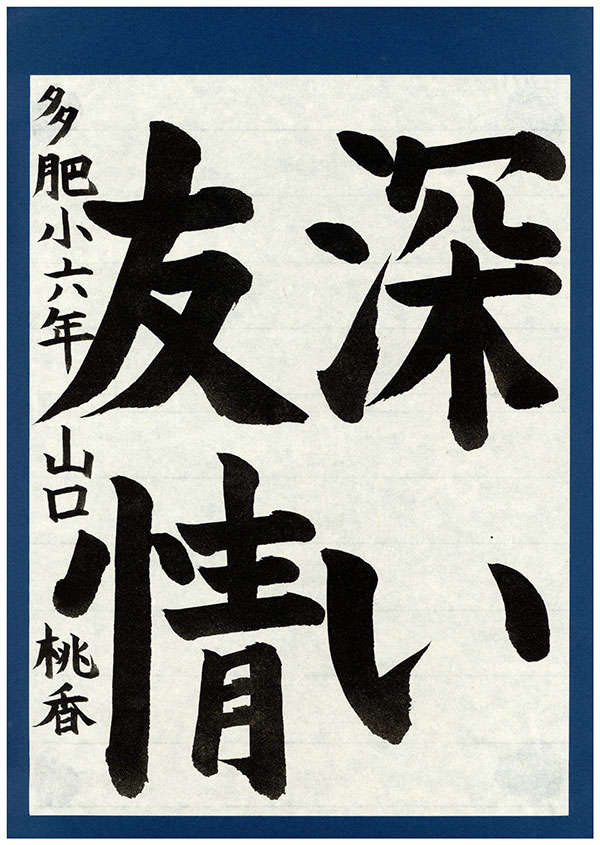 深い
友情
多肥小六年 山口 桃香